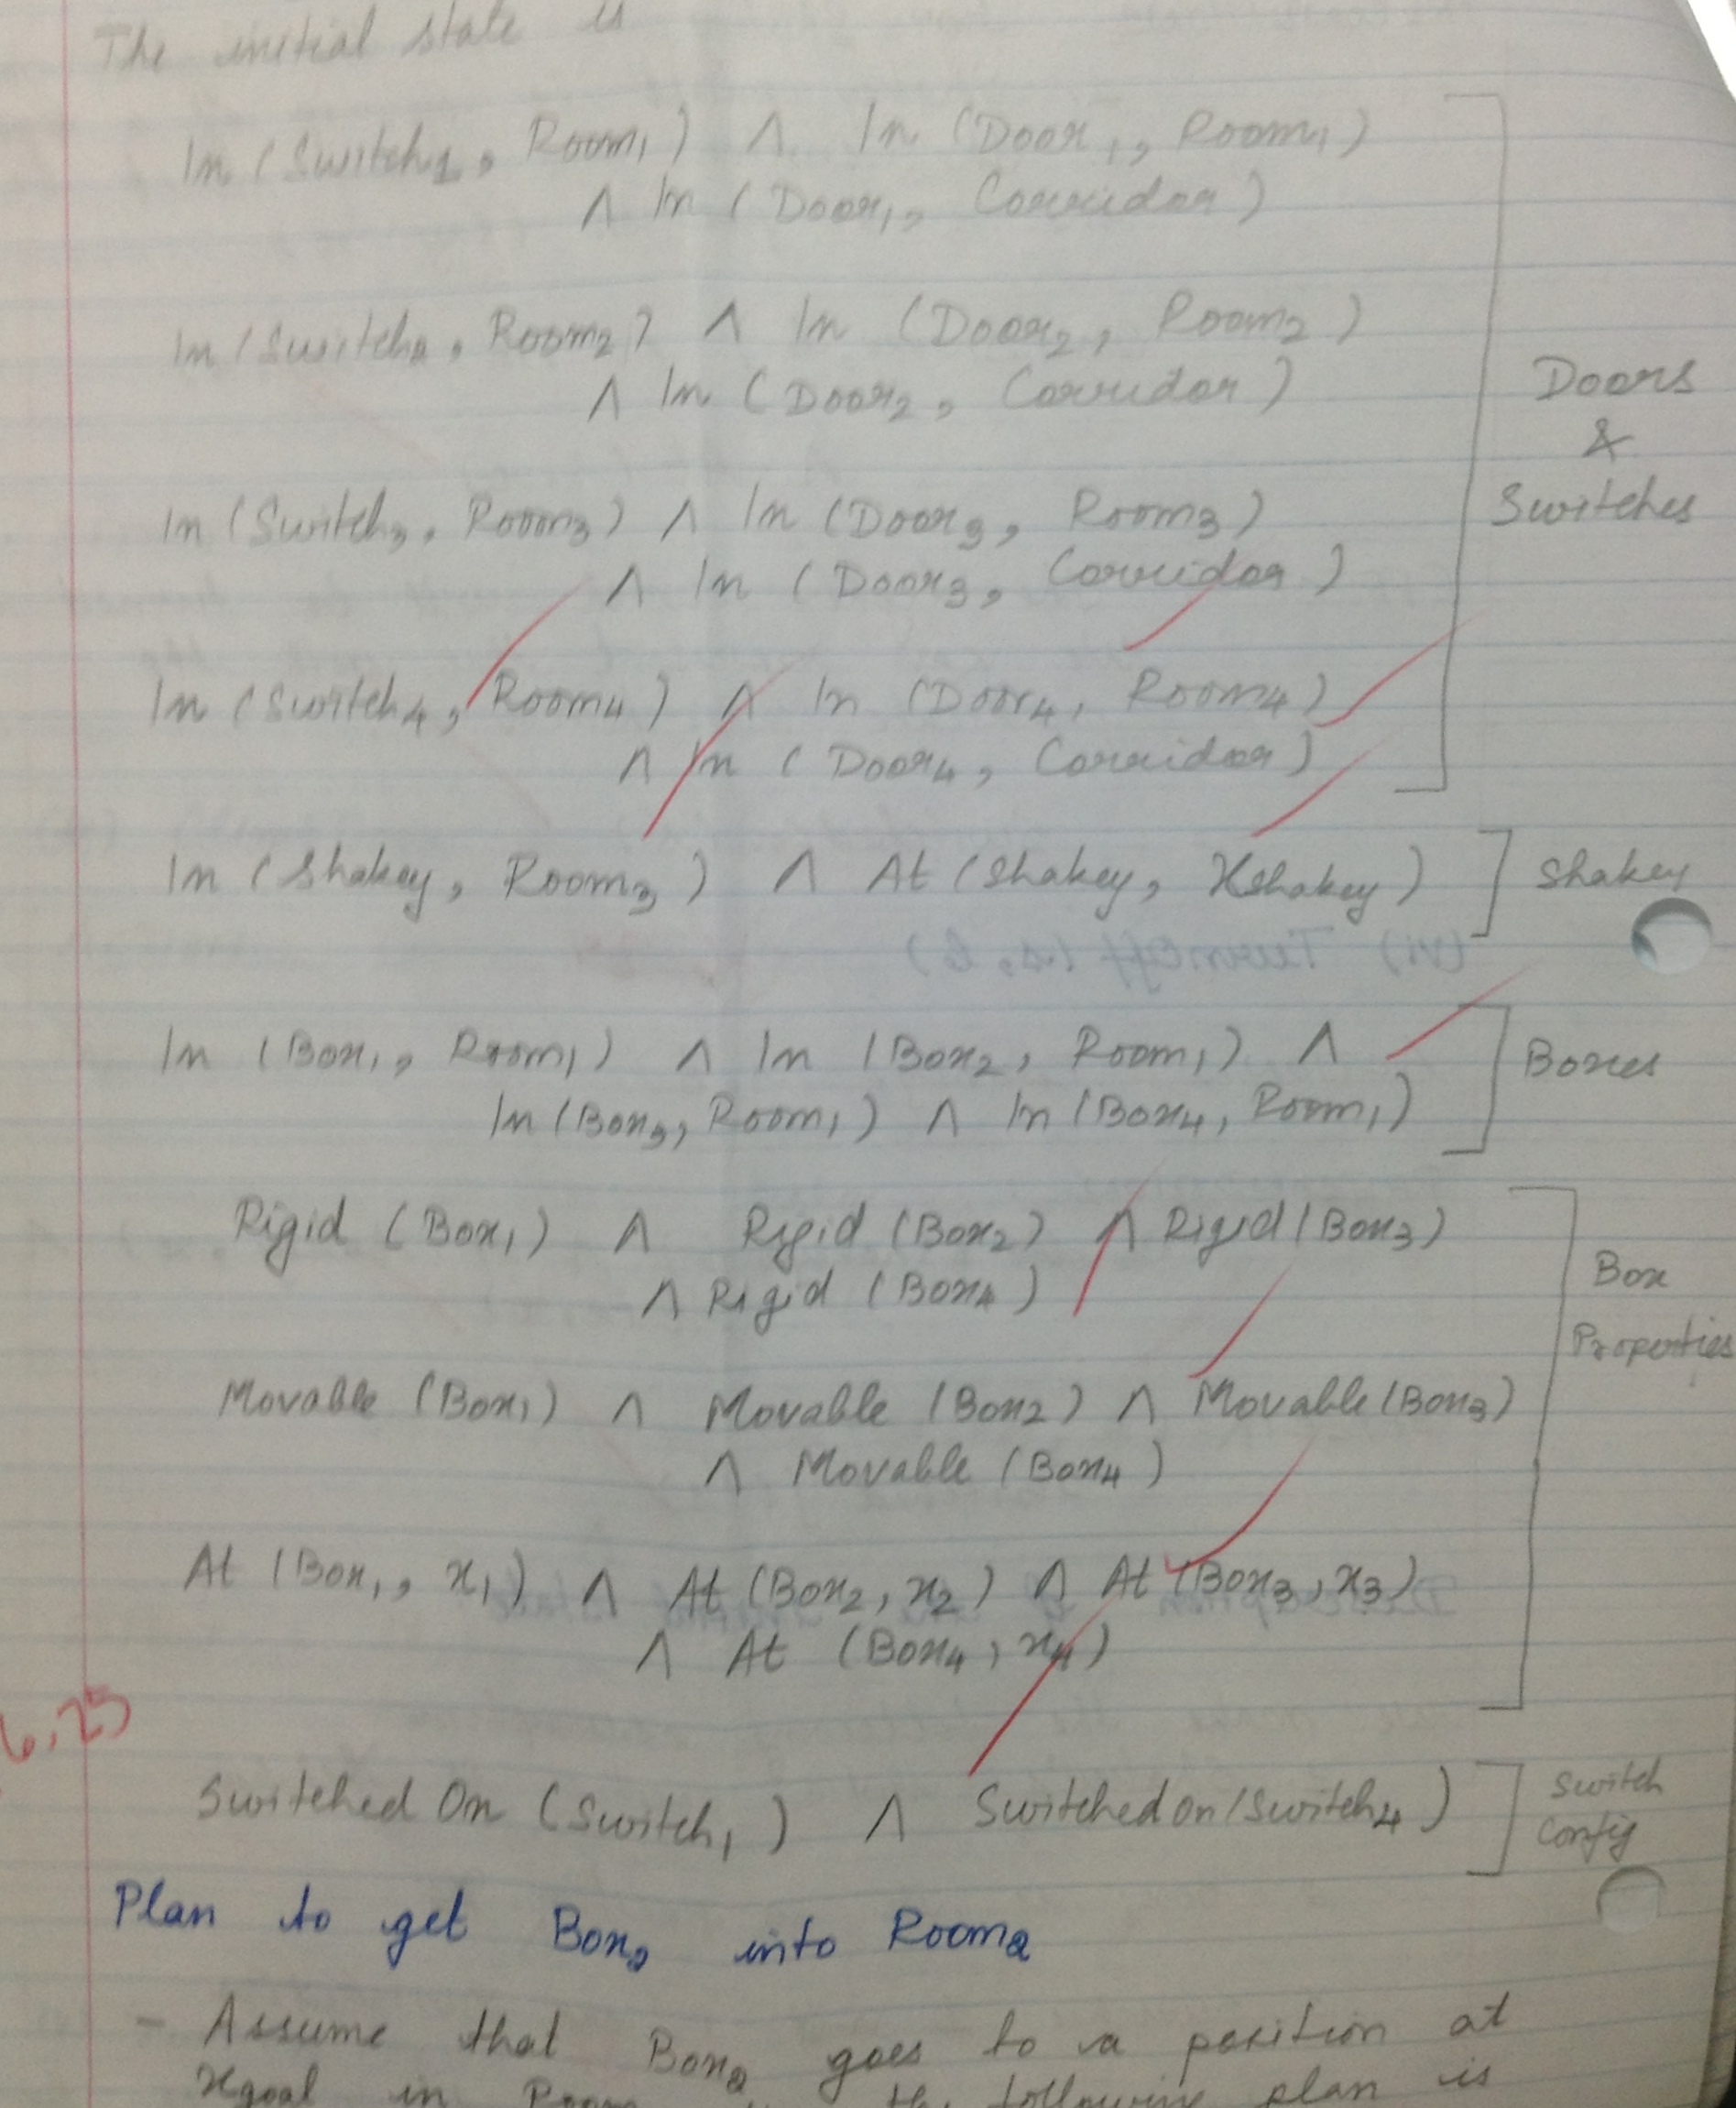 The initial state is
In (Switch1, Room1) ∧ In (Door1, Room1)
∧ In (Door1, Corridor)
In (Switch2, Room2) ∧ In (Door2, Room2)
∧ In (Door2, Corridor)
Doors
&
Switches
In (Switch3, Room3) ∧ In (Door3, Room3)
∧ In (Door3, Corridor)
In (Switch4, Room4) ∧ In (Door4, Room4)
∧ In (Door4, Corridor)
In (Shakey, Room3) ∧ At (Shakey, Xshakey)
Shakey
In (Box1, Room1) ∧ In (Box2, Room1) ∧
In (Box3, Room1) ∧ In (Box4, Room1)
Boxes
Rigid (Box1) ∧ Rigid (Box2) ∧ Rigid (Box3)
∧ Rigid (Box4)
Box
Properties
Movable (Box1) ∧ Movable (Box2) ∧ Movable (Box3)
∧ Movable (Box4)
At (Box1, x1) ∧ At (Box2, x2) ∧ At (Box3, x3)
∧ At (Box4, x4)
6.25
Switched On (Switch1) ∧ Switched On (Switch4)
Switch
Config
Plan to get Box2 into Room2
- Assume that Box2 goes to a position at
Xgoal in the following plan is